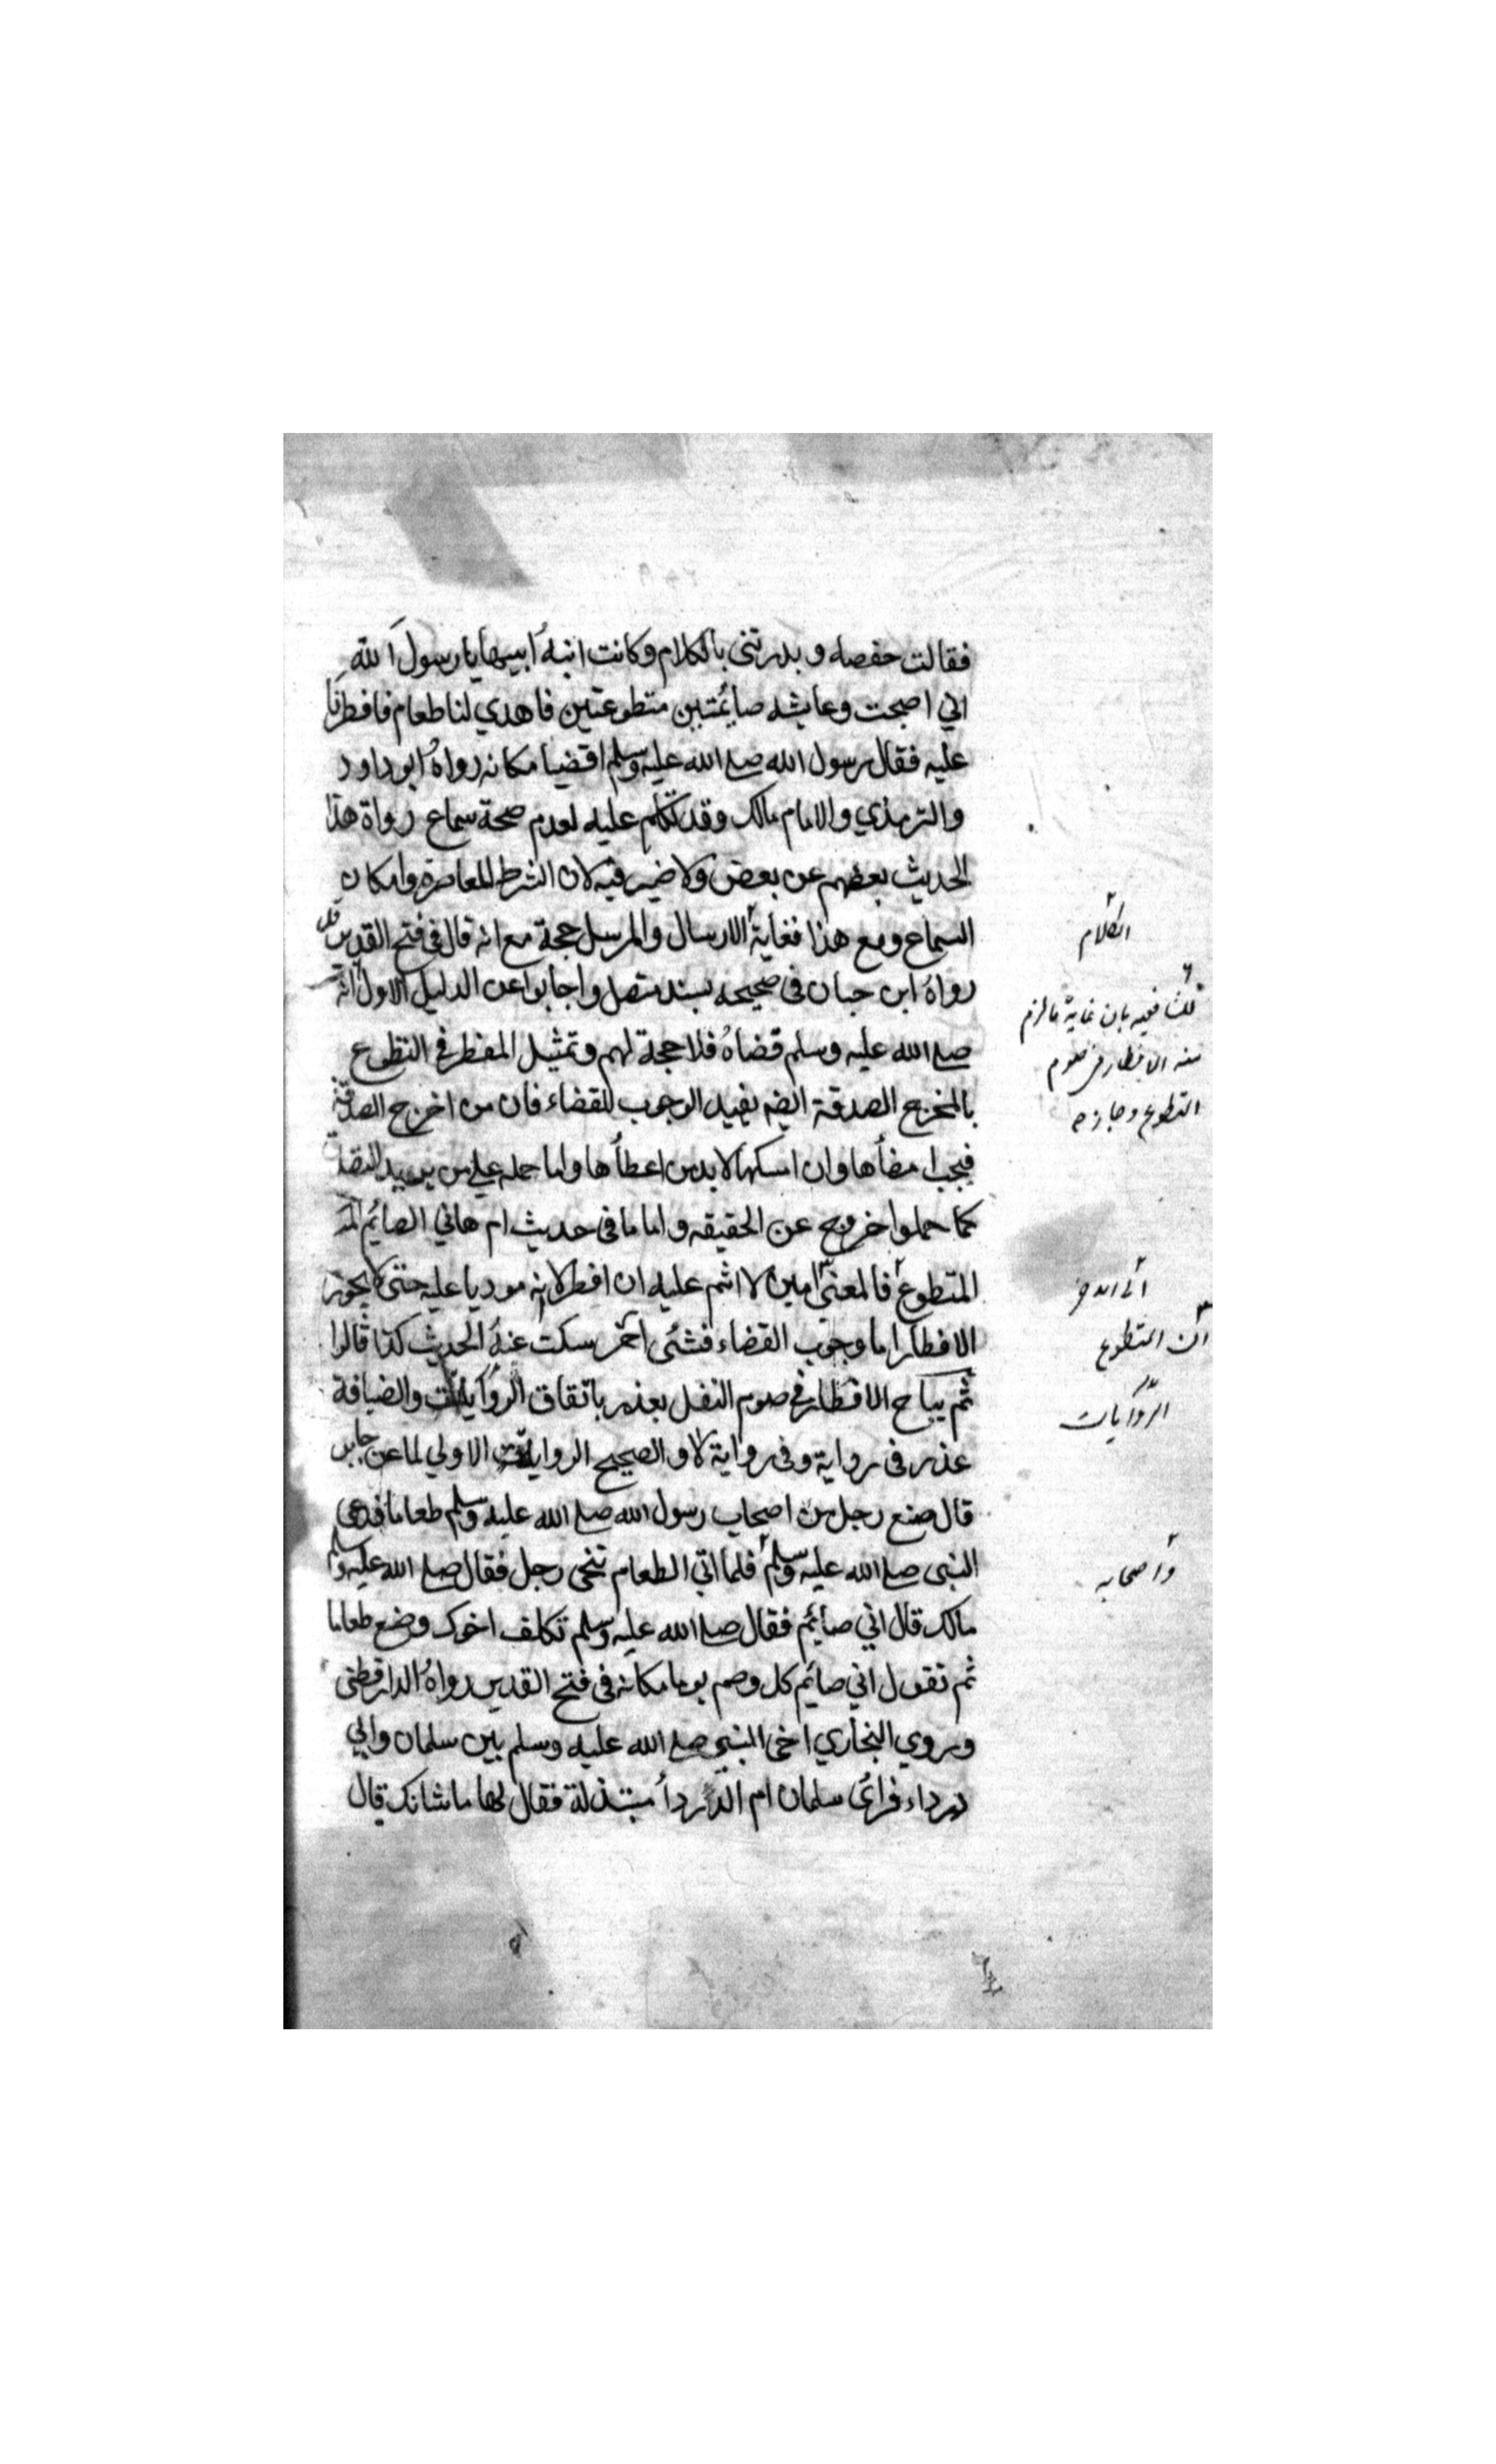 فقالت حفصه و بدرتنى بالكلام وكانت ابنة ابيها يا رسول الله
اني اصبحت وعايشه صائمتين متطوعتين فاهدي لنا طعام فافطرنا
عليه فقال رسول الله صلى الله عليه وسلم اقضيا مكانه رواه ابو داود
والترمذي والامام مالك وقد تكلم عليه لعدم صحة سماع رواة هذا
الحديث بعضهم عن بعض ولا ضير فيه لان الشرط المعاصرة وامكان
السماع ومع هذا فغاية الارسال والمرسل حجة مع انه قال فى فتح القدير قد
رواه ابن حبان فى صحيحه بسند متصل واجابوا عن الدليل الاول انه
صلى الله عليه وسلم قضاه فلا حجة لهم وتمثيل المفطر في التطوع
بالمخرج الصدقة ايضه يفيد الوجوب للقضاء فان من اخرج الصدقة
فيجب امضأها وان امسكها لا بد من اعطأها واما حمله على من يريد التصدق
كما حملوا خروج عن الحقيقه واما ما فى حديث ام هاني الصايم
المتطوع فالمعنى امين لا اثم عليه ان افطر لانه موديا عليه حتى لا يجوز
الافطار اما وجوب القضاء فشئى آخر سكت عنه الحديث كذا قالوا
ثم يباح الافطار في صوم النفل بعذر باتفاق الروايات والضيافة
عذر فى رواية وفى رواية لا و الصحيح الرواية الاولي لما عن جابر
قال صنع رجل من اصحاب رسول الله صلى الله عليه وسلم طعاما فدعى
النبى صلى الله عليه وسلم فلما اتي الطعام تنحى رجل فقال صلى الله عليه وسلم
مالك قال اني صايم فقال صلى الله عليه وسلم تكلف اخوك وضع طعاما
ثم تقول اني صايم كل وصم يوما مكانه فى فتح القدير رواه الدارقطنى
وروي البخاري اخى النبي صلى الله عليه وسلم بين سلمان وابي
درداء فرائ سلمان ام الدرداء مبتذلة فقال لها ما شانك قال
الكلام
فيه بان غاية ما لزم
منه الافطار فى صوم
التطوع وجازه
ان المتطوع
الروايات
واصحابه